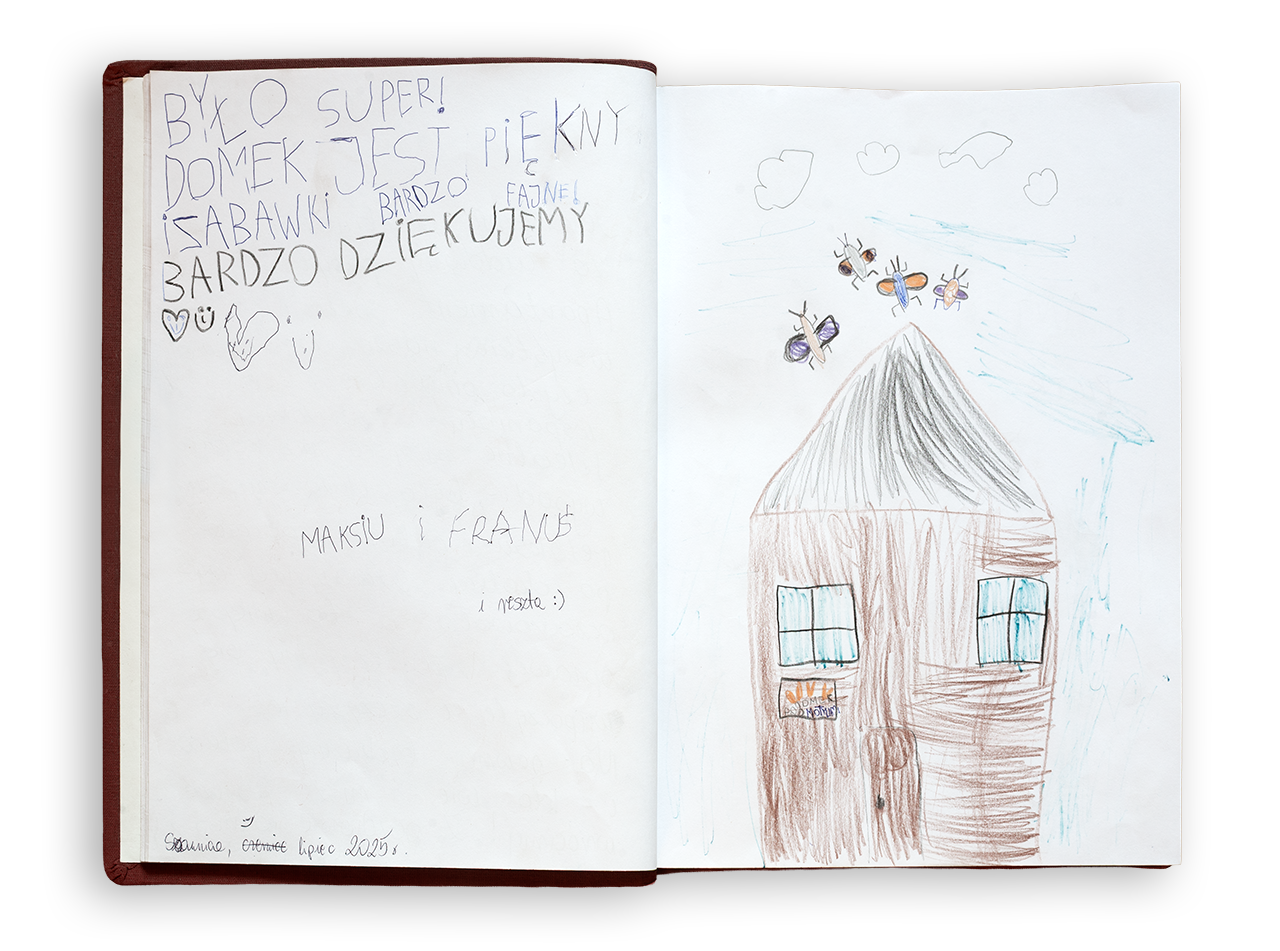 BYŁO SUPER!
DOMEK JEST PIĘKNY
i ZABAWKi BARDZO FAJNE!
BARDZO DZIĘKUJEMY
MAKSIU i FRANUŚ
i reszta :)
czerwiec lipiec 2025 r.
DOMEK
POD MOTYLEM